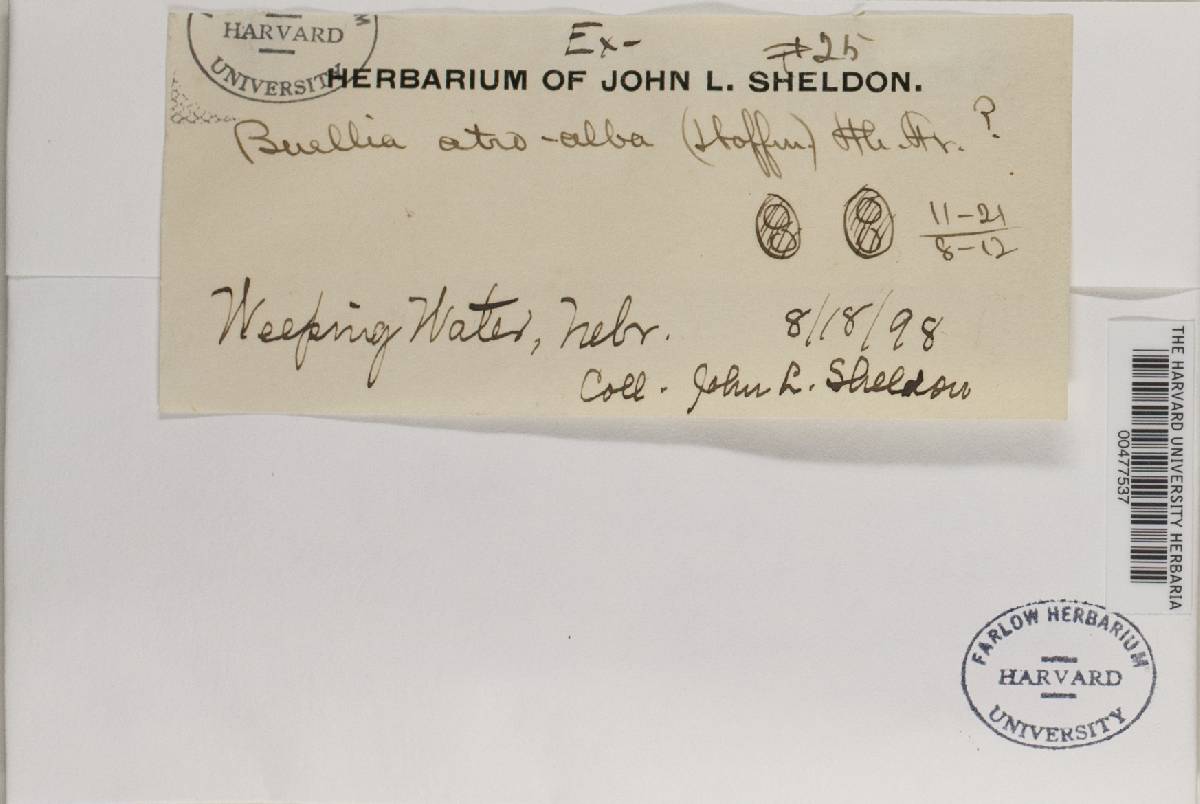 HARVARD
UNIVERSITY
Ex- #25
HERBARIUM OF JOHN L. SHELDON.
Buellia atro-alba (Hoffm.) Th. Fr. ?
11-21
8-12
Weeping Water, Nebr. 8/18/98
Coll. John L. Sheldon
THE HARVARD UNIVERSITY HERBARIA
00477537
FARLOW HERBARIUM
HARVARD
UNIVERSITY